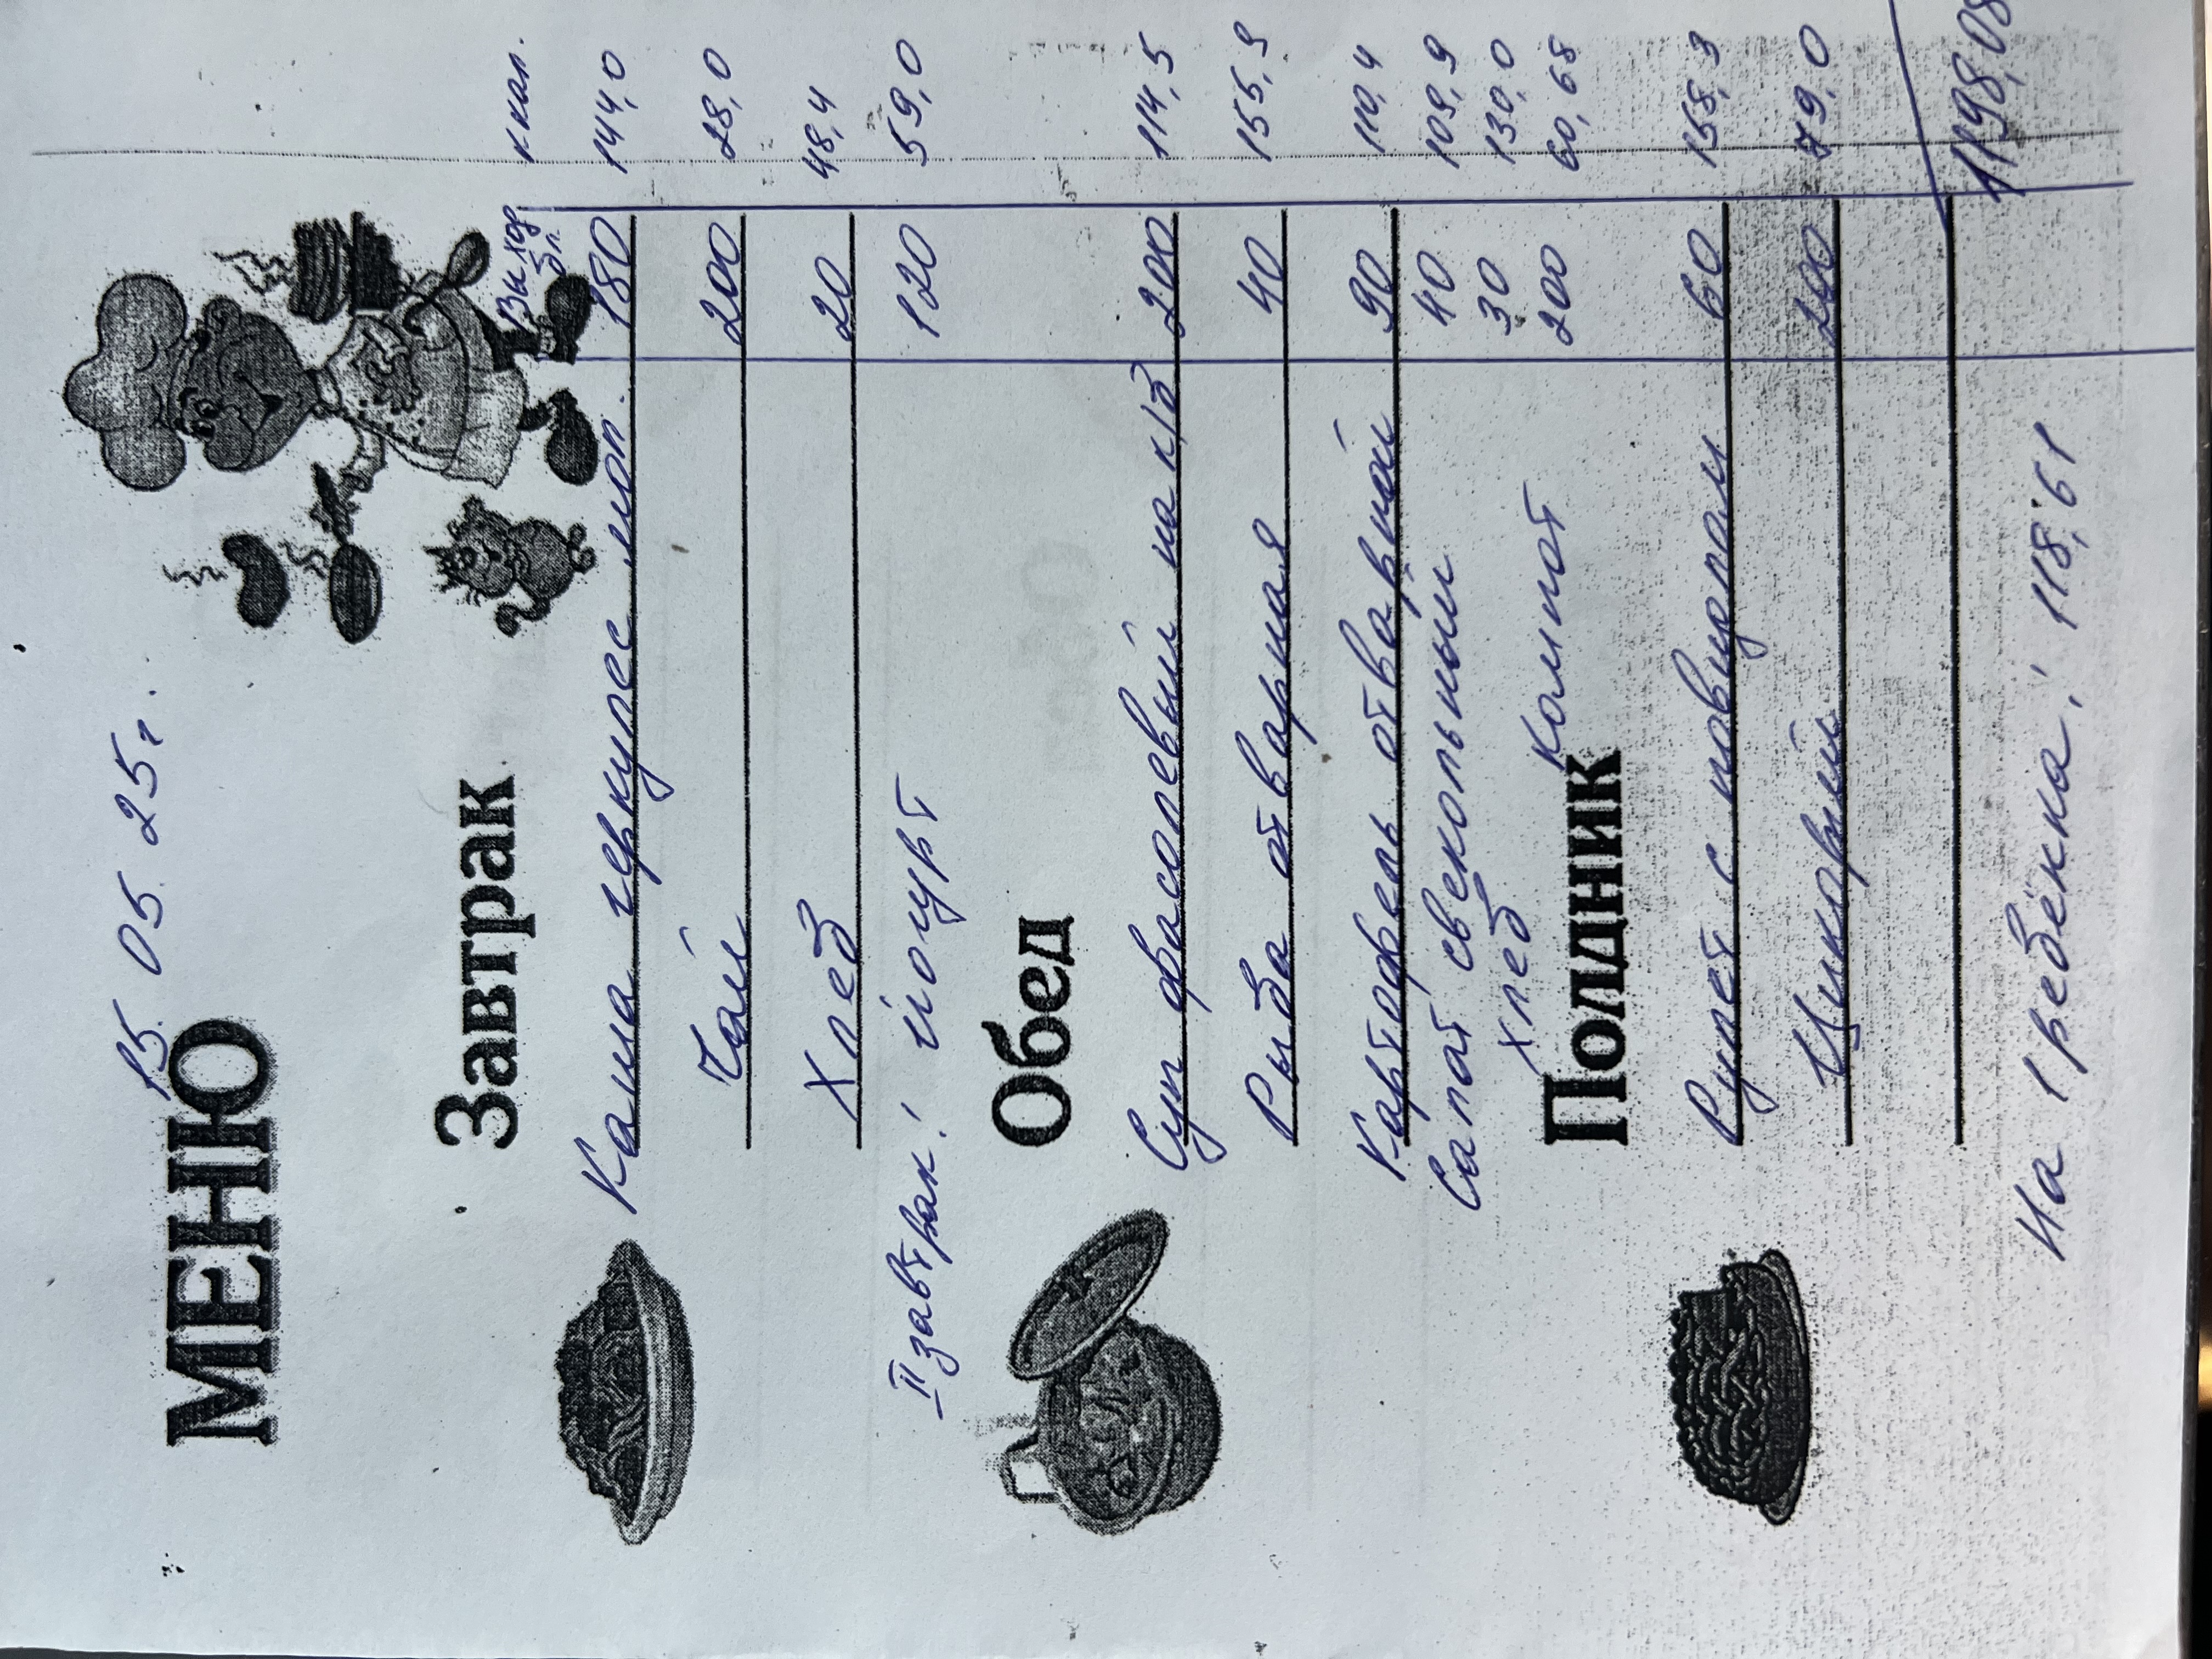 МЕНЮ 15 05 25г.
Завтрак
Выход бл. ккал.
Каша геркулес мол. 180 144,0
Чай 200 28,0
Хлеб 20 48,4
II завтрак: йогурт 120 59,0
Обед
Суп фасолевый на к/б 200 114,5
Рыба отварная 40 155,9
Картофель отварной 90 110,4
Салат свекольный 40 109,9
Хлеб 30 130,0
Компот 200 60,68
Полдник
Рулет с повидлом 60 158,3
Цикорий 200 79,0
1198,08
На 1 ребёнка: 118,61